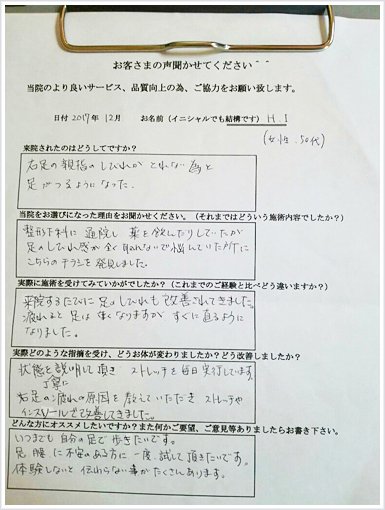 お客さまの声聞かせてください＾＾
当院のより良いサービス、品質向上の為、ご協力をお願い致します。
日付 2017年 12月 お名前(イニシャルでも結構です) H.I
(女性、50代)
来院されたのはどうしてですか?
右足の親指のしびれがとれない為と
足がつるようになった.
当院をお選びになった理由をお聞かせください。(それまではどういう施術内容でしたか?)
整形外科に通院し 薬を飲んだりしていたが
足のしびれ感が全く取れないで悩んでいた所に
こちらのチラシを発見しました.
実際に施術を受けてみていかがでしたか?(これまでのご経験と比べどう違いますか?)
来院するたびに足のしびれも改善されてきました。
疲れると足は重くなりますが すぐに直るように
なりました。
実際どのような指摘を受け、どうお体が変わりましたか?どう改善しましたか?
状態を説明して頂き ストレッチを毎日実行しています。
丁寧に
右足の疲れの原因を教えていただき ストレッチや
インソールで改善してきました。
どんな方にオススメしたいですか?また何かご要望、ご意見等ありましたらお書き下さい。
いつまでも自分の足で歩きたいです。
足、腰に不安のある方に一度、試して頂きたいです。
体験しないと伝わらない事がたくさんあります。